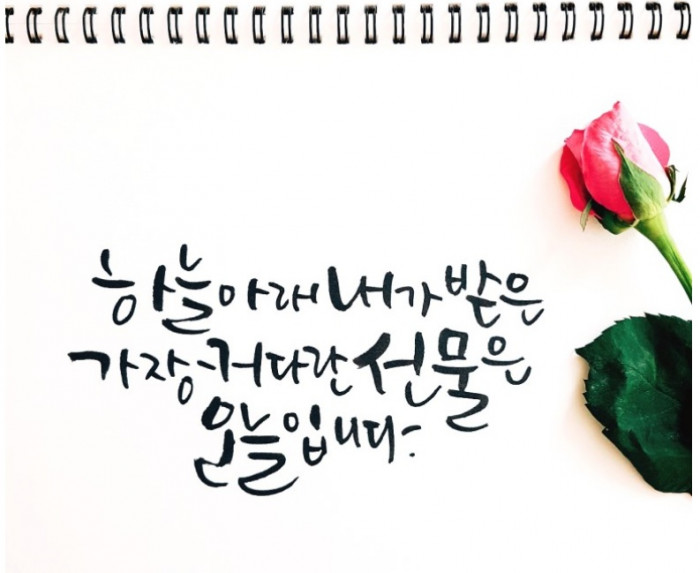 하늘 아래 내가 받은
가장 커다란 선물은
오늘입니다.